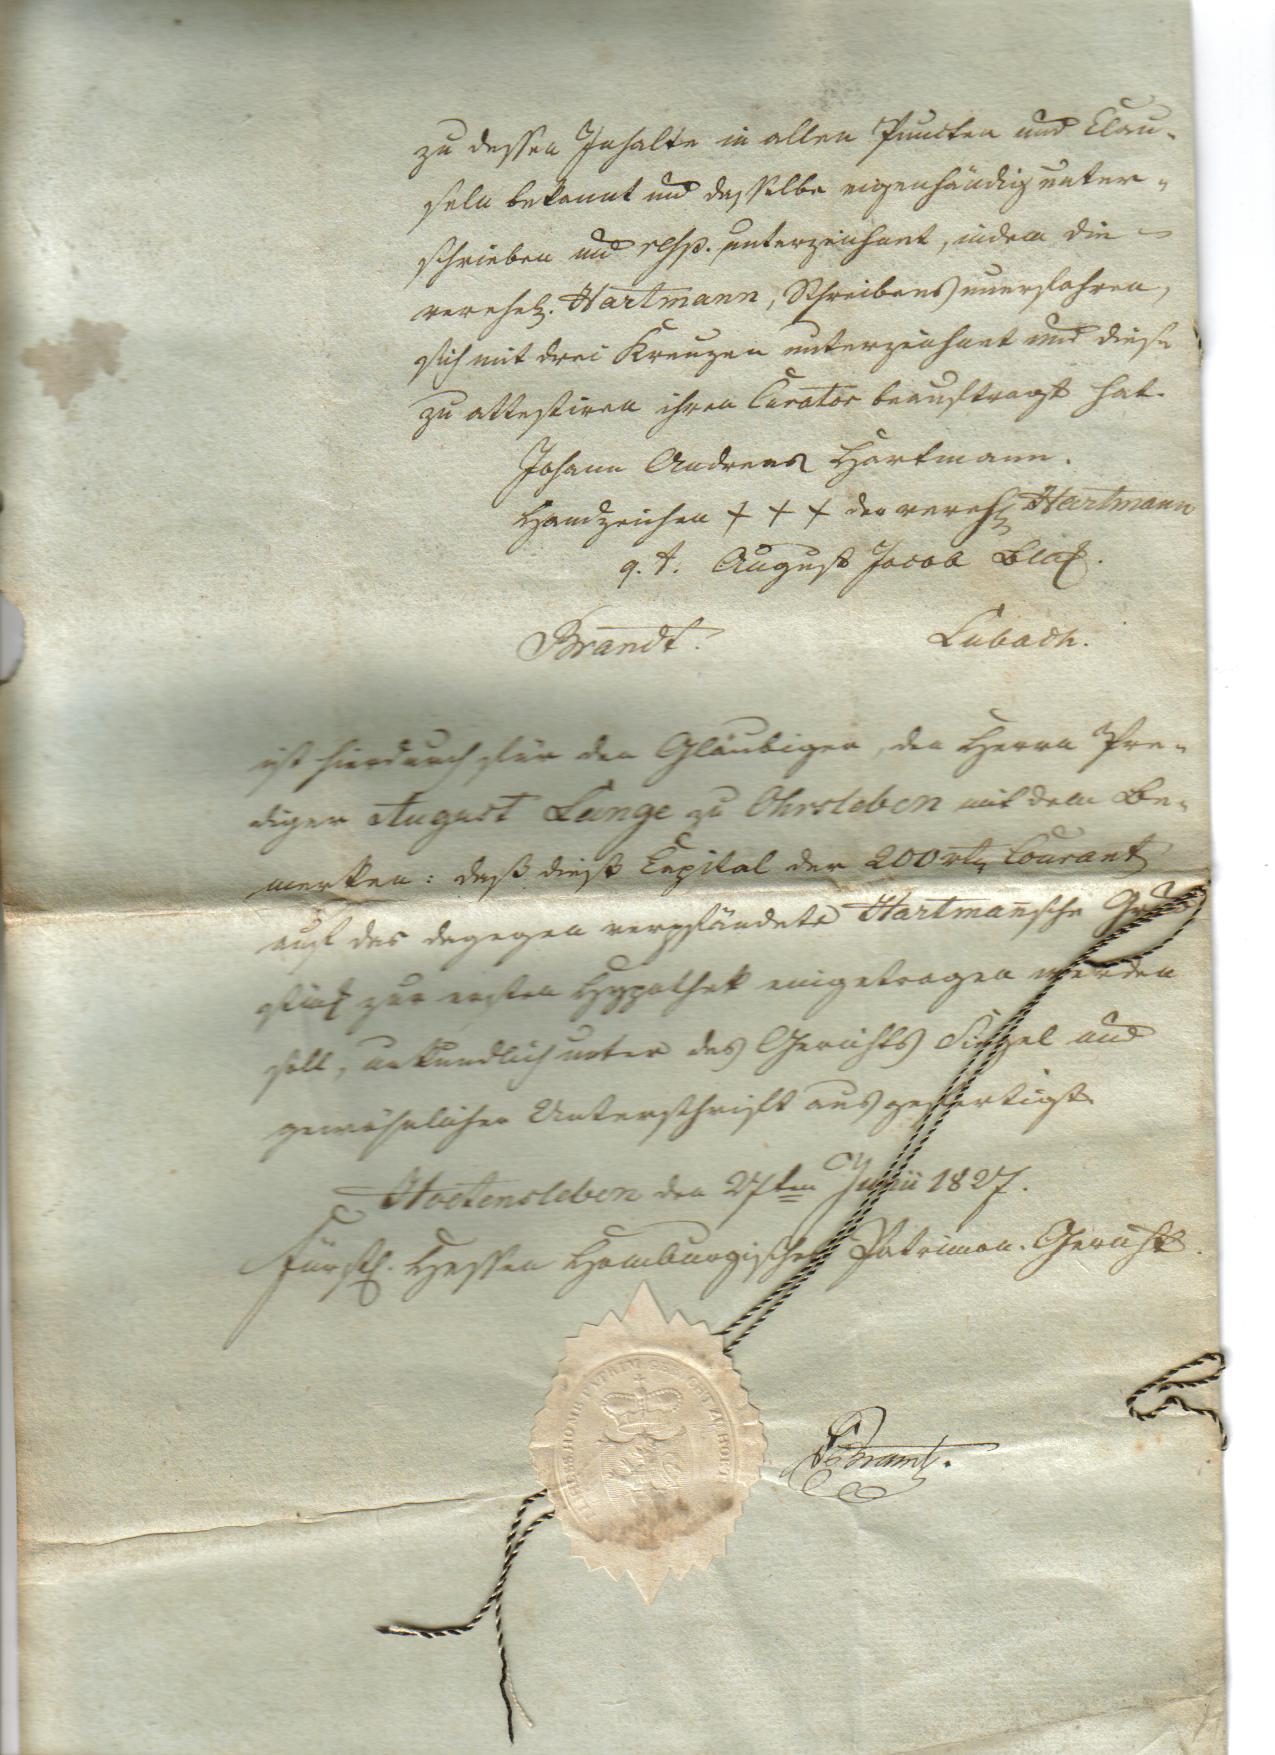 zu dessen Inhalte in allen Puncten und Clau-
seln bekannt und dasselbe eigenhändig unter-
schrieben und resp. unterzeichnet, indem die
verehel. Hartmann, Schreibens unerfahren,
sich mit drei Kreuzen unterzeichnet und diese
zu attestiren ihren Curator beauftragt hat.
Johann Andreas Hartmann.
Handzeichen + + + der verehel. Hartmann
q. t. August Jacob
Brandt. Lubach.
ist hierdurch für den Gläubiger, den Herrn Pre-
diger August Lange zu Ohrsleben mit dem Be-
merken: daß dieß Capital der 200 rtl. Courant
auf das dagegen verpfändete Hartmannsche Grund
stück zur ersten Hypothek eingetragen werden
soll, urkundlich unter des Gerichts Siegel und
gewöhnlicher Unterschrift ausgefertigt
Hoetensleben den 27ten Junii 1827.
Fürstl. Hessen Homburgisches Patrimon. Gericht.